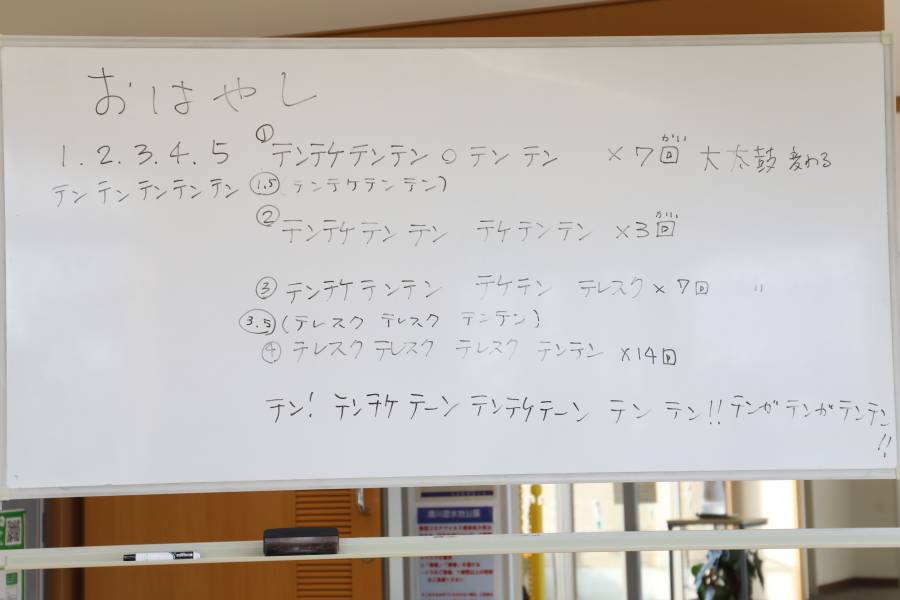 おはやし
1.2.3.4.5 ① テンテケテンテン ○ テン テン ×7回 大太鼓変わる
がい
テンテンテンテンテン ①.5 (テンテケテンテン)
② テンテケテン テン テケテンテン ×3回
がい
③ テンテケテンテン テケテン テレスク×7回 〃
③.5 (テレスク テレスク テンテン)
④ テレスク テレスク テレスク テンテン ×14回
テン! テンテケテーン テンテケテーン テン テン!! テンガ テンガテンテン!!